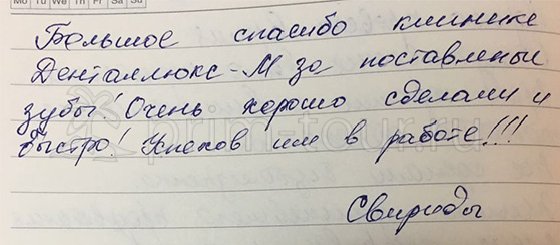 Mo Tu We Th Fr Sa Su
Большое спасибо клинике
Денталлюкс-М за поставленые
зубы! Очень хорошо сделали и
быстро! Успехов им в работе!!!
prim-tour.ru
Свириды